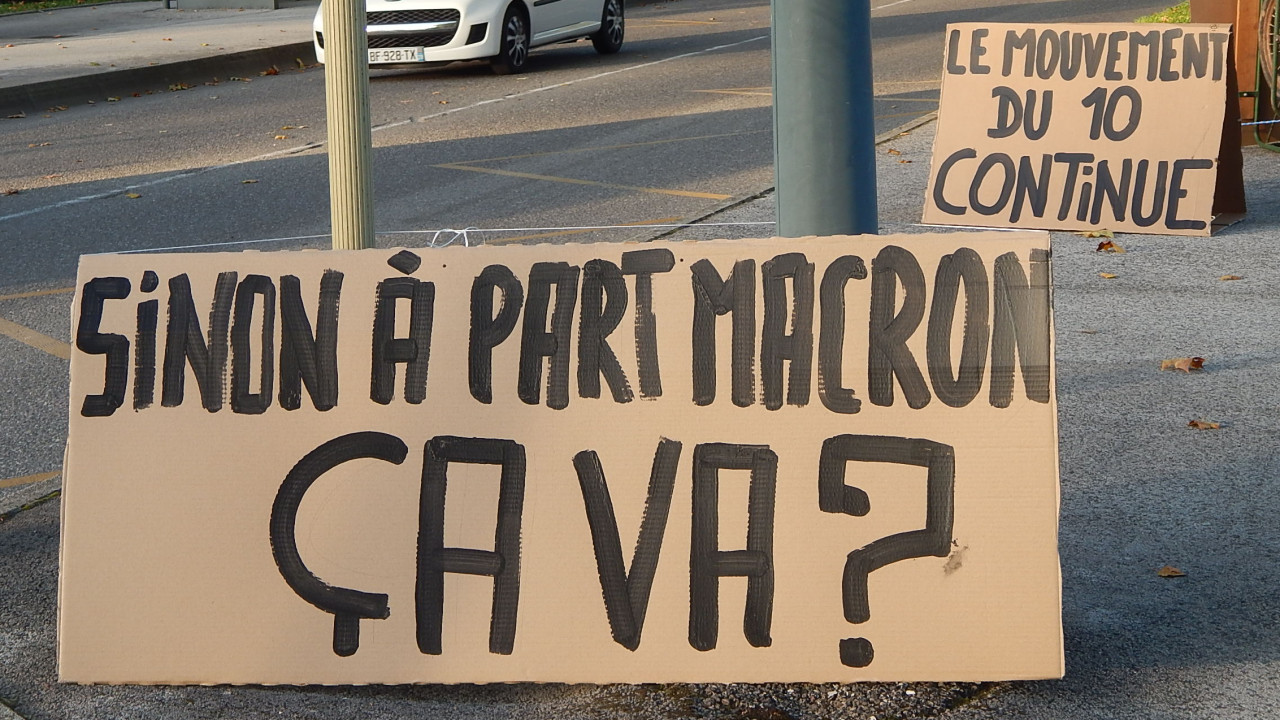 BF 928 TX
LE MOUVEMENT
DU 10
CONTiNUE
SiNON À PART MACRON
ÇA VA?